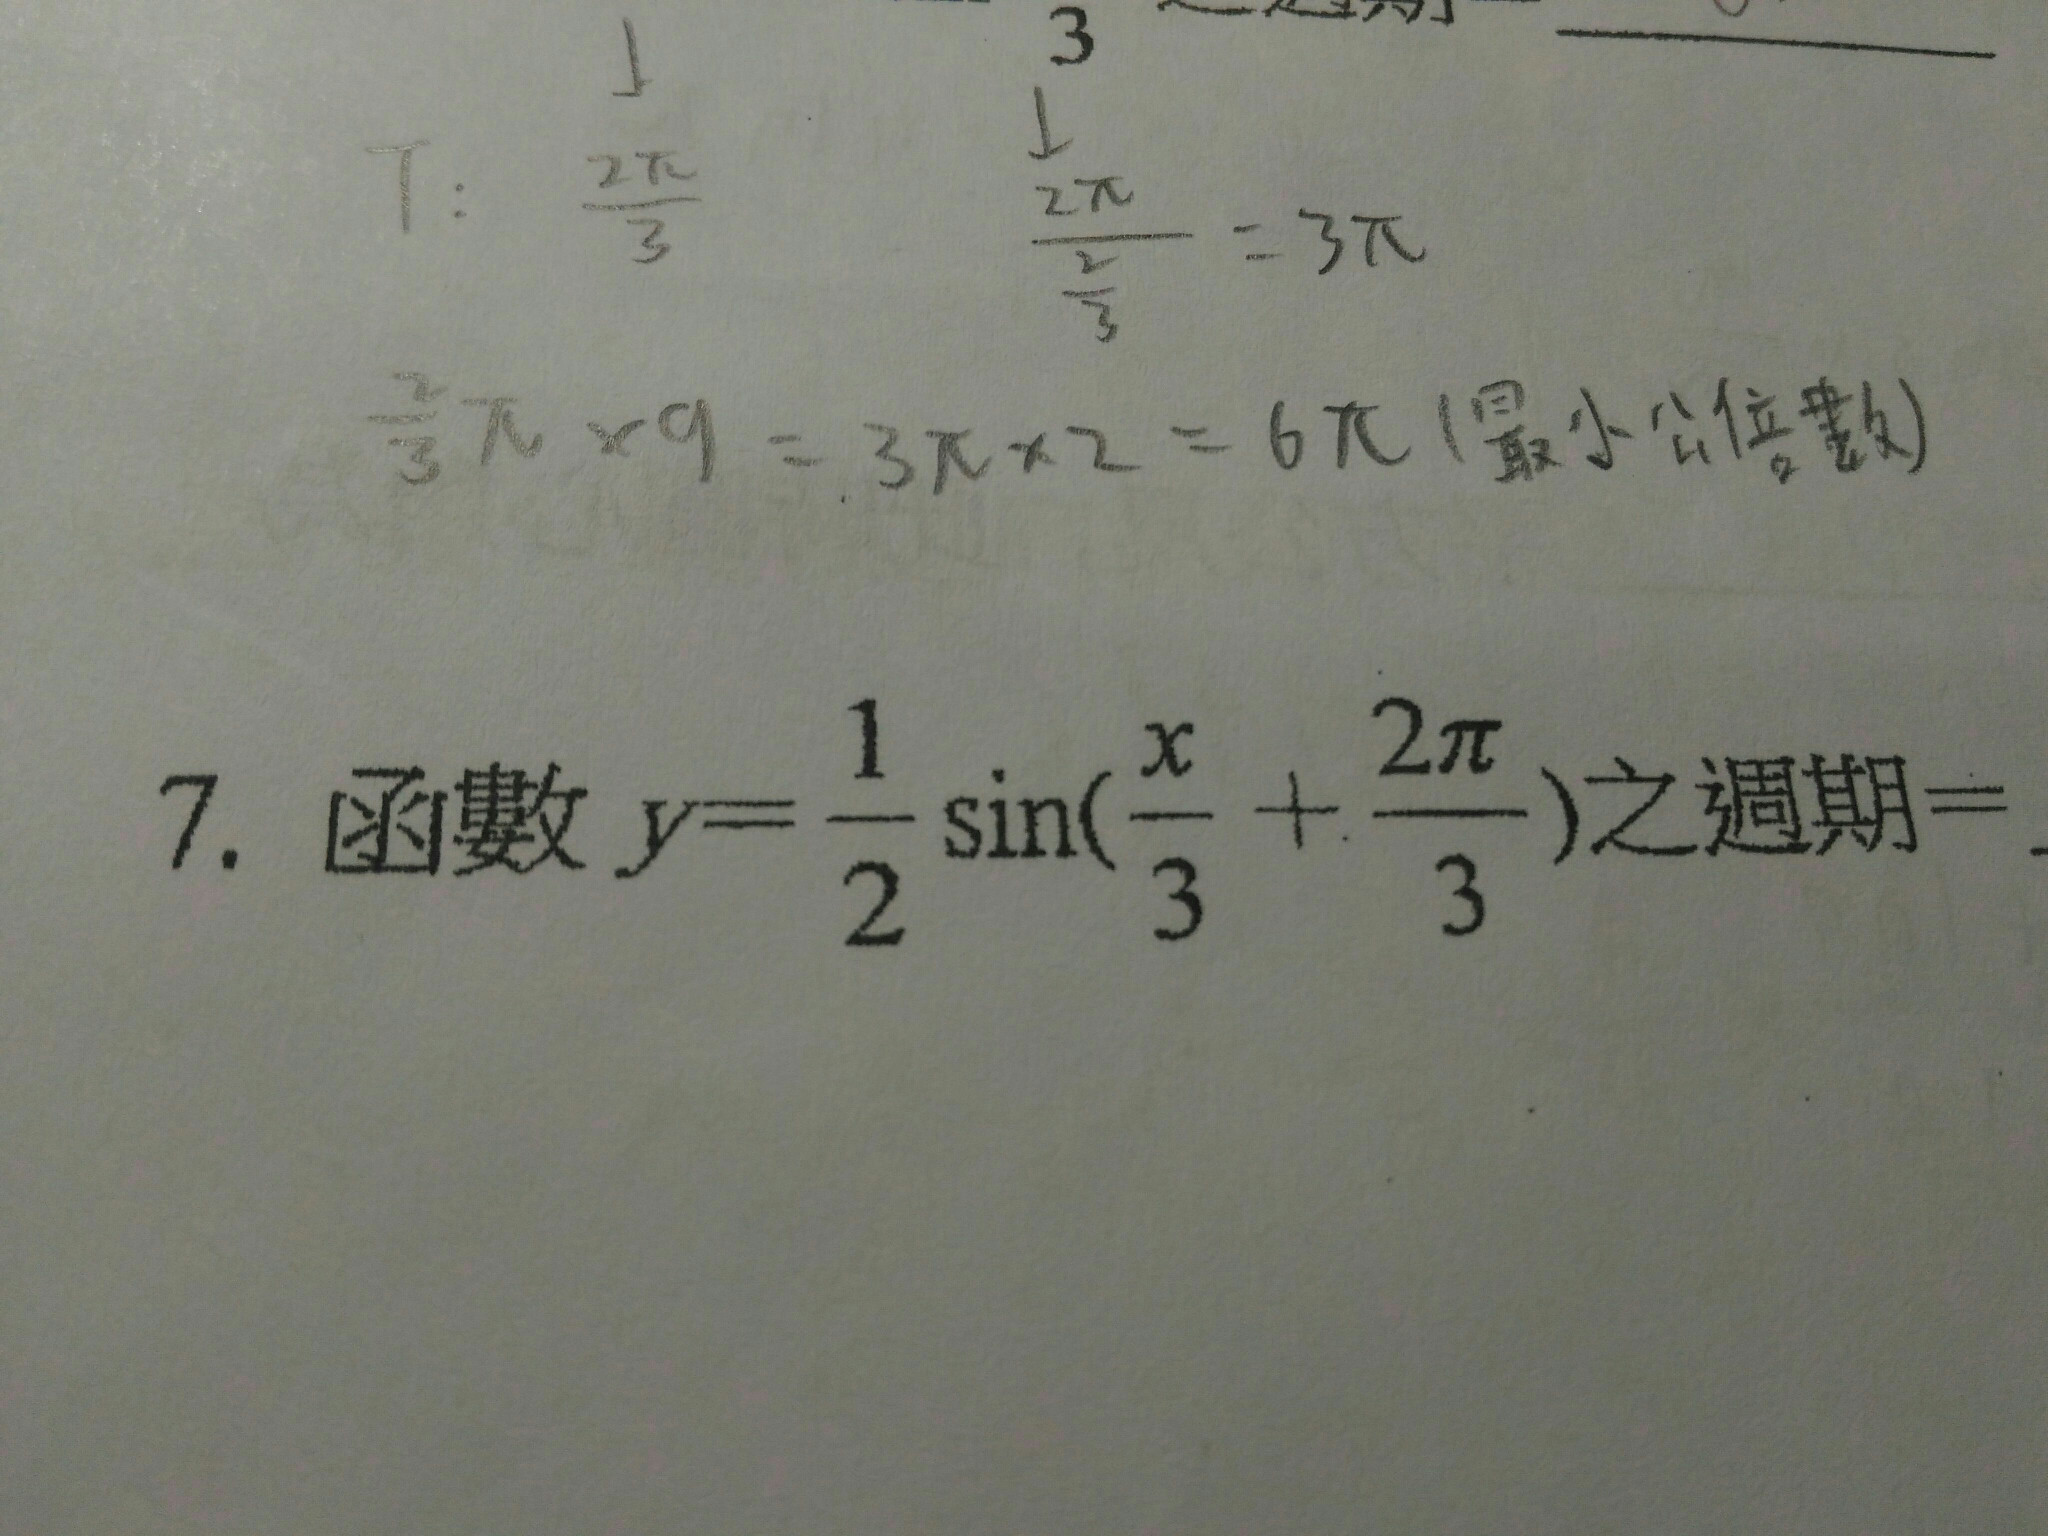 3 之週期=
T: 2π/3 2π/(2/3) = 3π
2/3 π × 9 = 3π × 2 = 6π (最小公倍數)
7. 函數 y= 1/2 sin( x/3 + 2π/3 )之週期=